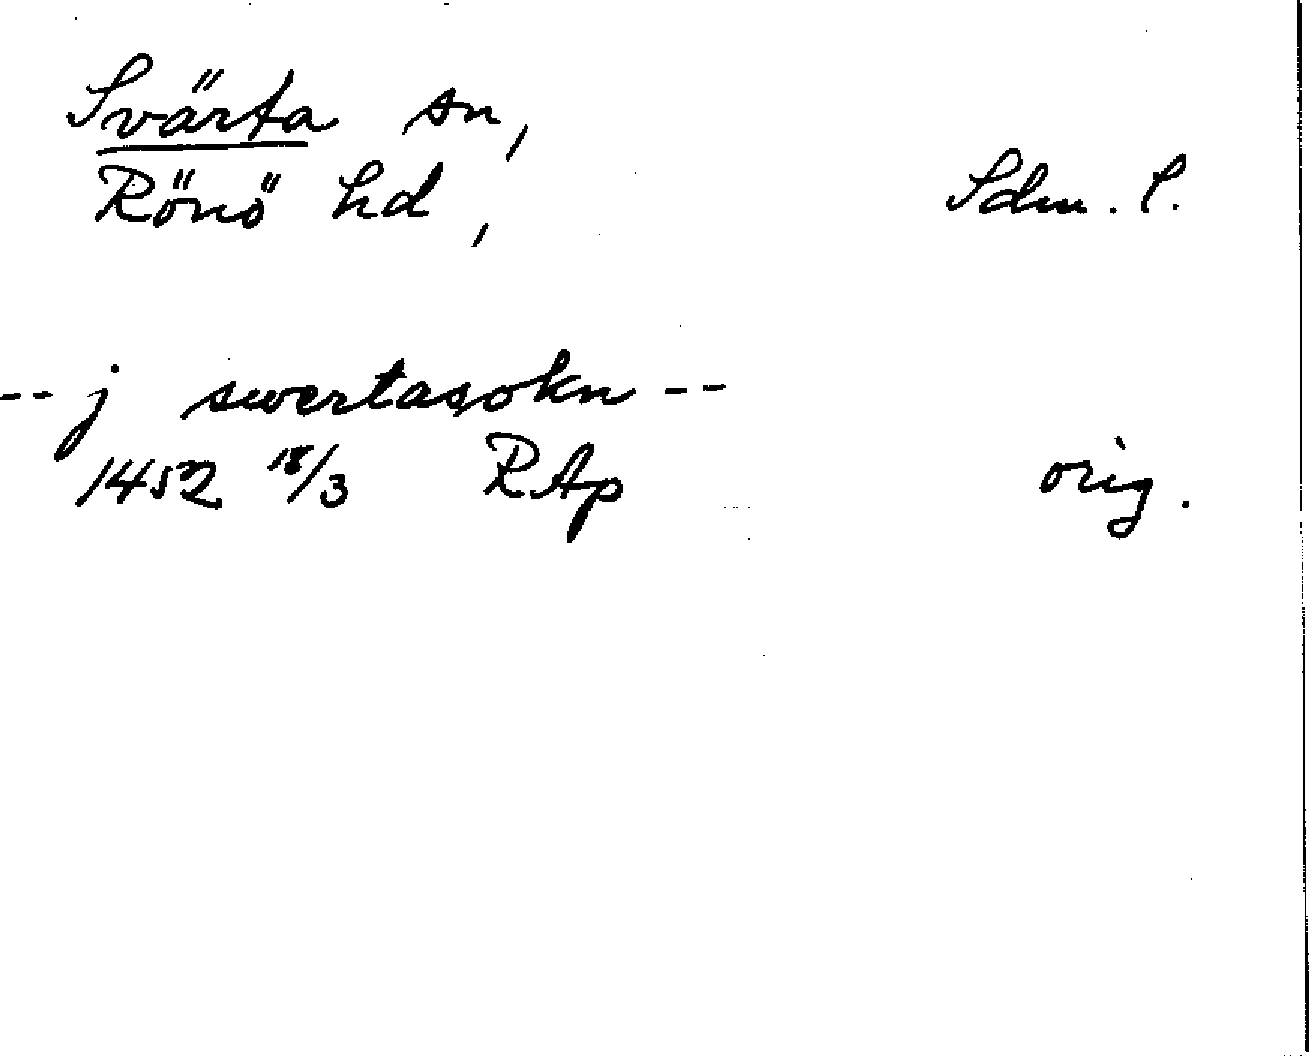 Svärta sn,
Rönö hd, Sdm. l.
-- j swertasokn --
1452 18/3 RAp orig.